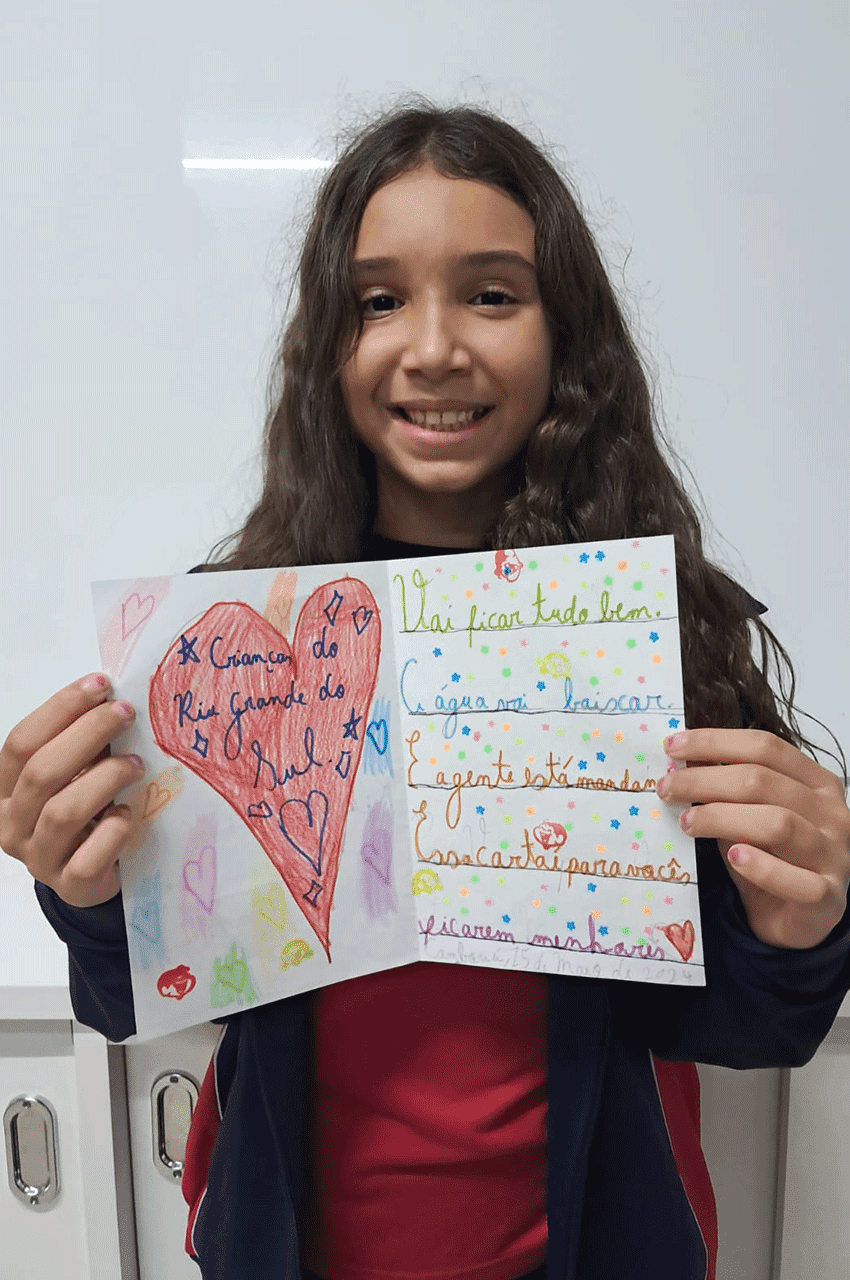 Crianças do
Riu grande do
Sul.
Vai ficar tudo bem.
A água vai baixar.
E agente está mandan
Essa carta i para vocês
ficarem menhores
15 de Maio de 2024